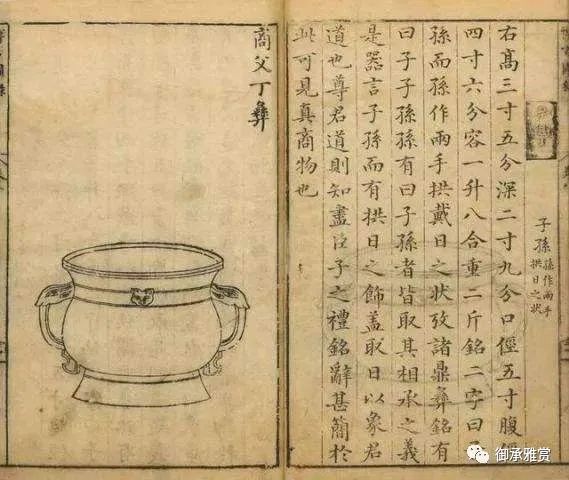 子孫
孫作兩手
拱日之狀
右髙三寸五分深二寸九分口徑五寸腹徑
四寸六分容一升八合重二斤銘二字曰子
孫而孫作兩手拱戴日之狀攷諸鼎彝銘有
曰子子孫孫有曰子孫者皆取其相承之義
是器言子孫而有拱日之飾蓋取日以象君
道也尊君道則知盡臣子之禮銘辭甚簡於
此可見真商物也
商父丁彝
御承雅赏